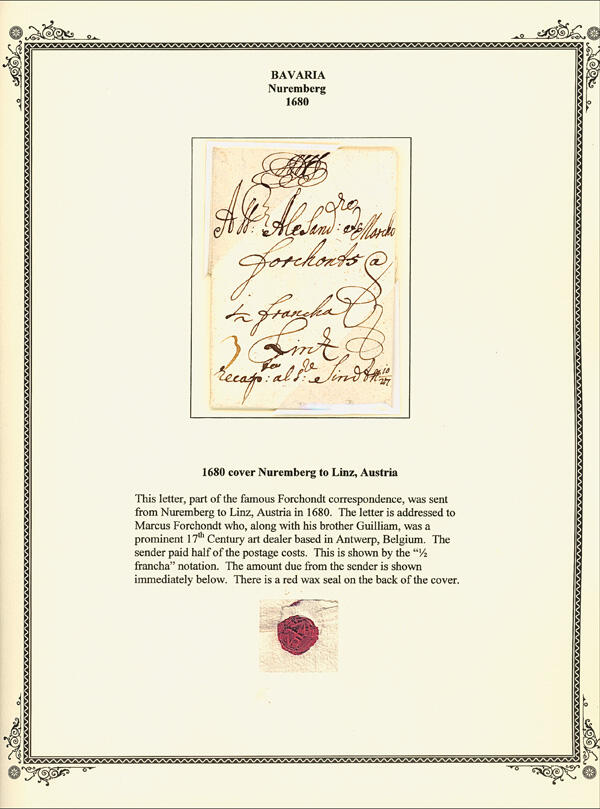 BAVARIA
Nuremberg
1680
Alesand: Marcho
forchonts @
½ francha
Linz
3
recap: al s:
1680 cover Nuremberg to Linz, Austria
This letter, part of the famous Forchondt correspondence, was sent
from Nuremberg to Linz, Austria in 1680.  The letter is addressed to
Marcus Forchondt who, along with his brother Guilliam, was a
prominent 17th Century art dealer based in Antwerp, Belgium.  The
sender paid half of the postage costs.  This is shown by the “½
francha” notation.  The amount due from the sender is shown
immediately below.  There is a red wax seal on the back of the cover.